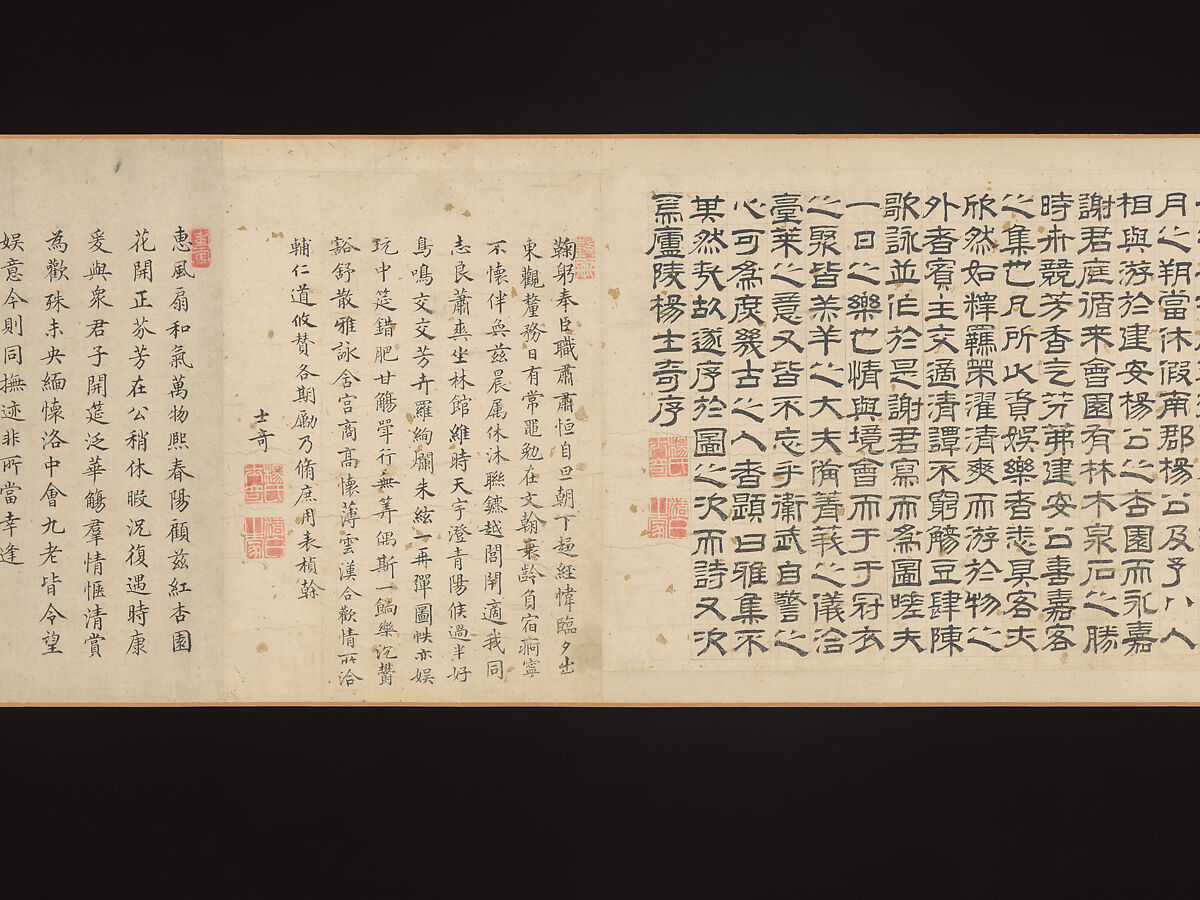 月之朔當休假南郡楊公及予八人
相與游於建安楊公之杏園而永嘉
謝君庭循来會園有林木泉石之勝
時卉競芳香氣芬茀建安公喜嘉客
之集也凡所以資娱樂者悉具客亦
欣然如釋羈策濯清爽而游於物之
外者賓主交適清譚不窮觴豆肆陳
歌詠並作於是謝君寫而爲圖嗟夫
一日之樂也情與境會而于于冠衣
之聚皆羔羊之大夫備菁莪之儀洽
臺萊之意又皆不忘乎衞武自警之
心可爲庶幾古之人者題曰雅集不
其然哉故遂序於圖之次而詩又次
焉廬陵楊士奇序
鞠躬奉臣職肅肅恒自日朝下趍經幃臨夕出
東觀釐務日有常黽勉在文翰衰齡負宿痾寧
不懷伴奐茲晨属休沐聯鑣越閭閈適我同
志良蕭爽坐林館維時天宇澄青陽候過半好
鳥鳴交交芳卉羅絢爛朱絃一再彈圖帙亦娱
玩中筵錯肥甘觴斝行無筭偶斯一餉樂沉鬱
豁舒散雅詠含宫商高懷薄雲漢合歡情所洽
輔仁道攸賛各期勵乃脩庶用表楨榦
士奇
惠風扇和氣萬物熙春陽顧兹紅杏園
花開正芬芳在公稍休暇况復遇時康
爰與衆君子開筵泛華觴羣情愜清賞
為歡殊未央緬懐洛中會九老皆令望
娱意今則同撫迹非所當幸逢